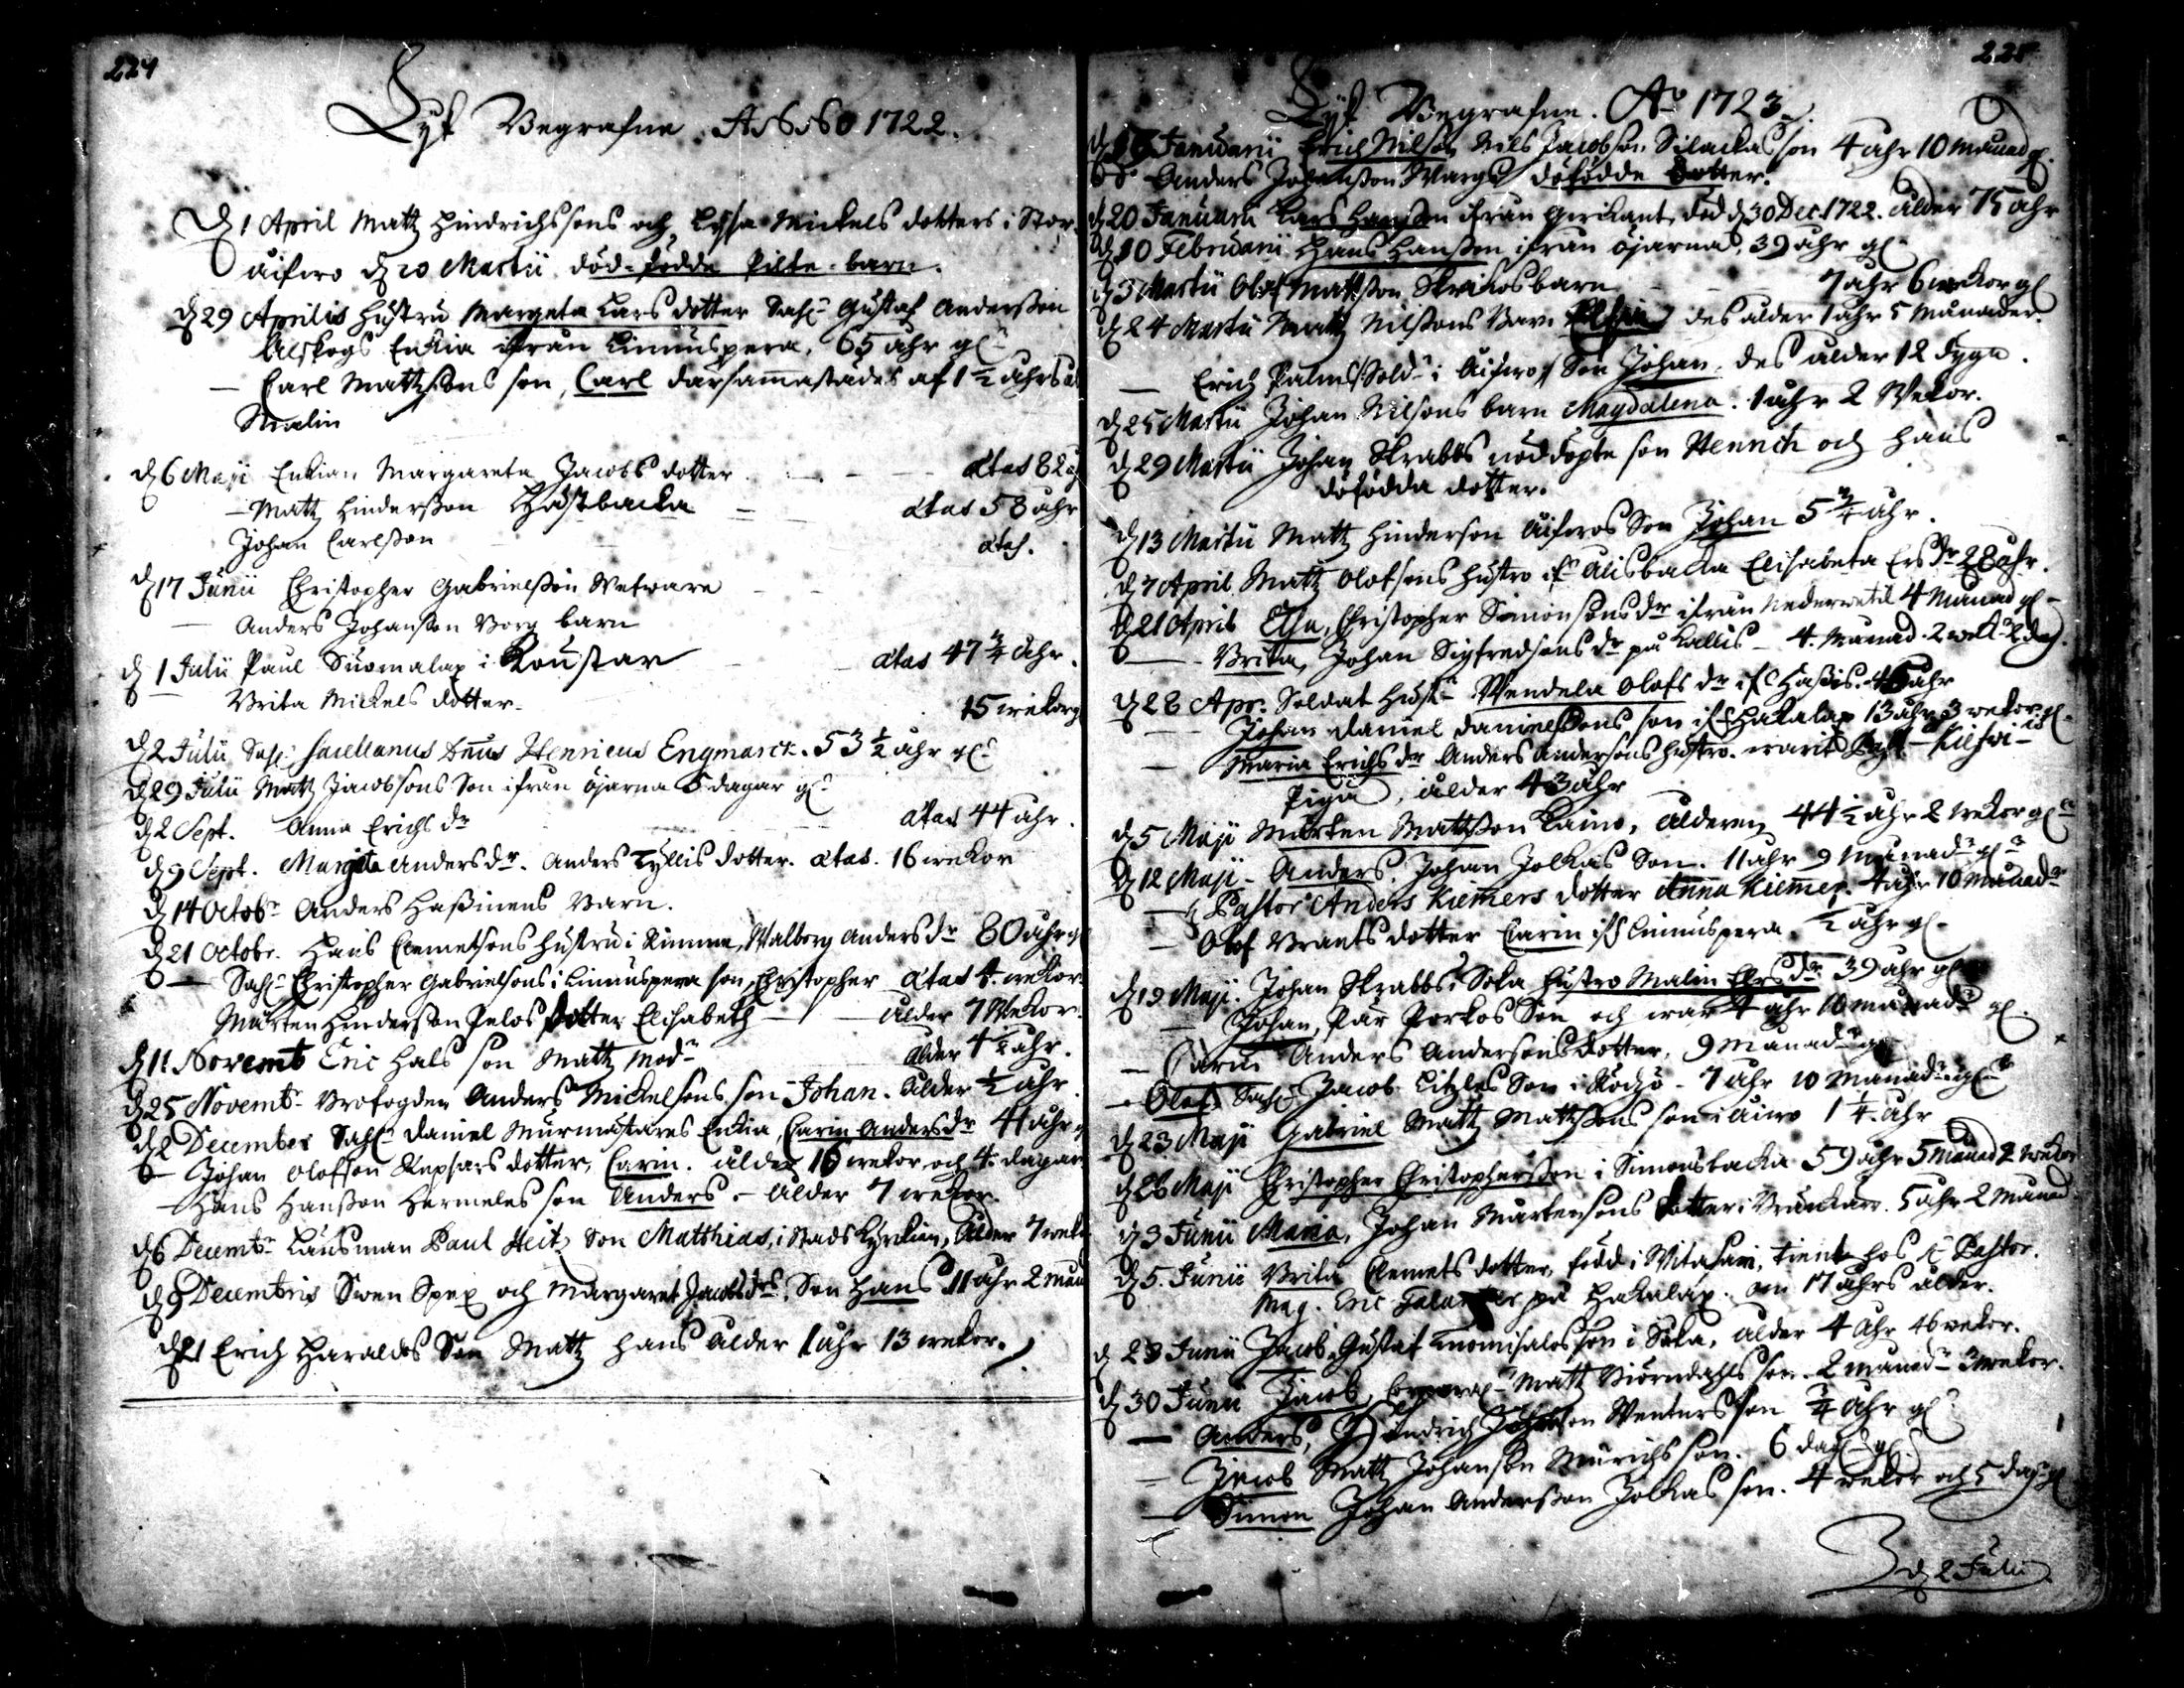 224
Lijk Begrafne Anno 1722.
D. 1 April Matz Hindrichssons och Lissa Mickels dotters i Stor
åisiwo d. 20 Martii död-födda Pilte-barn.
d. 29 Aprilis Hustru Margeta Lars dotter Sahl. Gustaf Andersson
Enkia ifrån Linnuspera, 65 åhr gl.
— Carl Mattzsons son, Carl därsammastädes af 1½ åhrs
Malin
d. 6 Maji Enkian Margareta Jacobs dotter ætas 82
— Matz Hindersson Hästbacka ætas 58 åhr
Johan Carlsson ætas.
d. 17 Junii Christopher Gabrielsson
— Anders Johansson Borg barn
d. 1 Julii Paul Suomalax i ætas 47 ¾ åhr.
Brita Mickels dotter 15 wekor
d. 2 Julii Sahl. Sacellanus Dnus Henricus Engmarck. 53 ½ åhr gl.
d. 29 Julii Matz Jacobsons Son ifrån öjarna 5 dagar gl.
d. 2 Sept. Anna Erichs dr ætas 44 åhr.
d. 9 Sept. Margeta Anders dr. Anders Tyllis dotter. ætas. 16 wekor
d. 14 Octobr Anders Hassinens Barn.
d. 21 Octobr. Hans Clemetsons hustru i Rimme, Walborg Anders dr 80 åhr gl
— Sahl. Christopher Gabrielsons i Linnuspera son Christopher ætas 4. wekor
Mårten Hindersson Pelos dotter Elisabeth — ålder 7 Wekor.
d. 11 Novemb Eric Hals son Matz ålder 4 ¼ åhr.
d. 25 Novembr. Brofogden Anders Mickelsons son Johan. ålder ½ åhr
d. 2 December Sahl. Daniel Murmästares Enkia, Carin Anders dr 41 åhr
— Johan Olofsson dotter, Carin. ålder 10 wekor och 4. dagar
— Hans Hansson Hermeles son Anders. — ålder 7 wekor.
d. 6 Decembr. Länsman Paul Heitz Son Matthias, i Stads Kyrkian, ålder 7 weko
d. 9 Decembris Swen Spex och Margaret Jacobs drs. Son Hans 11 åhr 2 mån
d. 21 Erich Haralds Son Matz hans ålder 1 åhr 13 wekor.
225
Lijk Begrafne. Ao 1723.
Januarii Erich Nilson Nils Jacobson Silackas son 4 åhr 10 Månad gl.
do Anders Johansson Wargs döfödde dotter.
d. 20 Januarii Lars Hansson ifrån Gerikant, död d. 30 Dec. 1722. ålder 75 åhr
d. 10 Februarii Hans Hansson ifrån öjarna, 39 åhr gl.
d. 3 Martii Olof Mattsson barn 7 åhr 6 wekor gl
d. 24 Martii Matz Nilssons Barn des ålder 1 åhr 5 Månader.
— Erich Palms Sold. i Åisiwo Son Johan, des ålder 12 dygn.
d. 25 Martii Johan Nilsons barn Magdalena. 1 åhr 2 Wekor.
d. 29 Martii Johan Skrabbs nöddöpte son Henrich och hans
döfödda dotter.
d. 13 Martii Matz Hinderson Åisiwos Son Johan 5 ¾ åhr.
d. 7 April Matz Olofsons hustro ifr. Ålisbacka Elisabeta Ers dr 28 åhr.
d. 21 April Elsa, Christopher Simonsons dr ifrån Nederwetil 4 Månad gl.
— Brita, Johan Sigfredsons dr på Kallis 4. Månad. 2 wek. 2 dag.
d. 28 Apr. Soldat Hust. Wendela Olofs dr ifr. Hassis. åhr
— Johan Daniel Danielssons son ifr. Hakalax 13 åhr 3 wekor gl.
— Maria Erichs dr Anders Andersons hustro. warit
Piga, ålder 43 åhr
d. 5 Maji Mårten Mattsson Kaino, ålderen 44 ½ åhr 2 wekor gl.
d. 12 Maji — Anders. Johan Jolkas Son. 11 åhr 9 Månad gl.
— Pastor Anders Kiemers dotter Anna Kiemer, 4 åhr 10 Månad
— Olof Brants dotter Carin ifr. Linnuspera. ½ åhr gl.
d. 19 Maji. Johan Skrabbs i Soka Hustro Malin Ers dr 39 åhr gl
— Johan, Pär Porkos Son och war 4 åhr 10 månad gl.
— Carin Anders Andersons dotter, 9 Månad gl
— Olof. Sahl. Jacob Litzles Son i Rödsö — 7 åhr 10 Månad gl.
d. 23 Maji Gabriel Matz Mattssons son i åiwo 1 ¼. åhr
d. 26 Maji Christopher Christophersson i Simonsbacka 59 åhr 5 Månad 2 weko
d. 3 Junii Maria, Johan Mårtensons dotter i 5 åhr 2 Månad
d. 5. Junii Brita Clemets dotter, född i Witasari, tient hos Pastor.
Mag. Eric Falander på Hakalax. om 17 åhrs ålder.
d. 23 Junii Jacob, Gustaf son i Soka, ålder 4 åhr 46 wekor.
d. 30 Junii Jacob, Corporal Matz Biörndahls son. 2 månad 3 wekor.
— Anders, Hindrich Johansson Wenturs son ¾ åhr gl
— Jacob Matz Johanson Murichs son. 6 dag. gl
— Simon Johan Andersson Jolkas son. 4 wekor och 5 dag. gl
d. 2 Julii